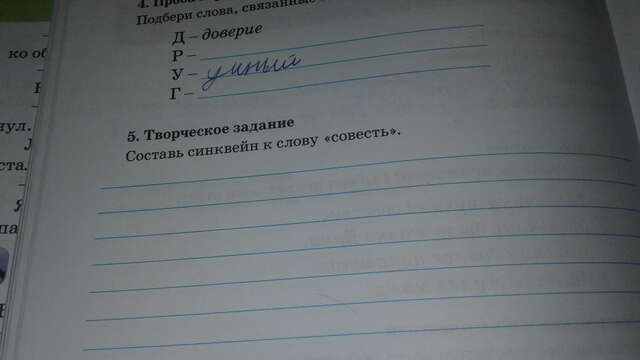 Подбери слова, связанные
Д – доверие
Р –
У – умный
Г –
5. Творческое задание
Составь синквейн к слову «совесть».
ко об
нул.
ста.
Я
па